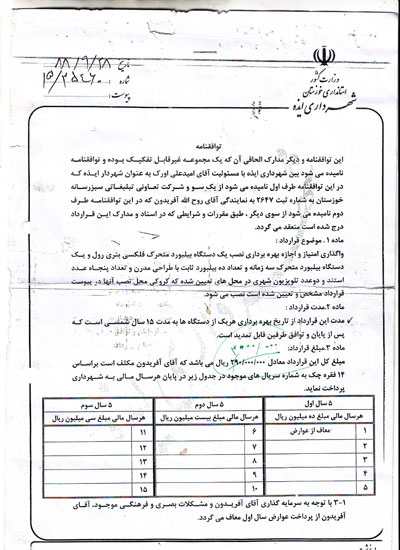 وزارت کشور
استانداری خوزستان
شهرداری ایذه
تاریخ ۸۸/۹/۲۸
شماره :
پیوست :
توافقنامه
این توافقنامه و دیگر مدارک الحاقی آن که یک مجموعه غیرقابل تفکیک بوده و توافقنامه
نامیده می شود بین شهرداری ایذه با مسئولیت آقای امیدعلی اورک به عنوان شهردار ایذه که
در این توافقنامه طرف اول نامیده می شود از یک سو و شرکت تعاونی تبلیغاتی سبزرسانه
خوزستان به شماره ثبت ۲۶۴۷ به نمایندگی آقای روح الله آفریدون که در این توافقنامه طرف
دوم نامیده می شود از سوی دیگر ، طبق مقررات و شرایطی که در اسناد و مدارک این قرارداد
درج شده است منعقد می گردد.
ماده ۱ . موضوع قرارداد :
واگذاری امتیاز و اجازه بهره برداری نصب یک دستگاه بیلبورد متحرک فلکسی بنری رول و یک
دستگاه بیلبورد متحرک سه زمانه و تعداد ده بیلبورد ثابت با طراحی مدرن و تعداد پنجاه عدد
استند و دوعدد تلویزیون شهری در محل های تعیین شده که کروکی محل نصب آنها در پیوست
قرارداد مشخص و تعیین شده است نصب می شود.
ماده ۲.مدت قرارداد :
مدت این قرارداد از تاریخ بهره برداری هریک از دستگاه ها به مدت ۱۵ سال شمسی است که
پس از پایان و توافق طرفین قابل تمدید است.
ماده ۳.مبلغ قرارداد:
مبلغ کل این قرارداد معادل ۲۹۰/۰۰۰/۰۰۰ ریال می باشد که آقای آفریدون مکلف است براساس
۱۴ فقره چک به شماره سریال های موجود در جدول زیر در پایان هرسال مالی به شهرداری
پرداخت نماید.
۵ سال اول ۵ سال دوم ۵ سال سوم
هرسال مالی مبلغ ده میلیون ریال هرسال مالی مبلغ بیست میلیون ریال هرسال مالی مبلغ سی میلیون ریال
۱ معاف از عوارض ۶ ۱۱
۲ ۷ ۱۲
۳ ۸ ۱۳
۴ ۹ ۱۴
۵ ۱۰ ۱۵
۳-۱ با توجه به سرمایه گذاری آقای آفریدون و مشکلات بصری و فرهنگی موجود، آقای
آفریدون از پرداخت عوارض سال اول معاف می گردد.